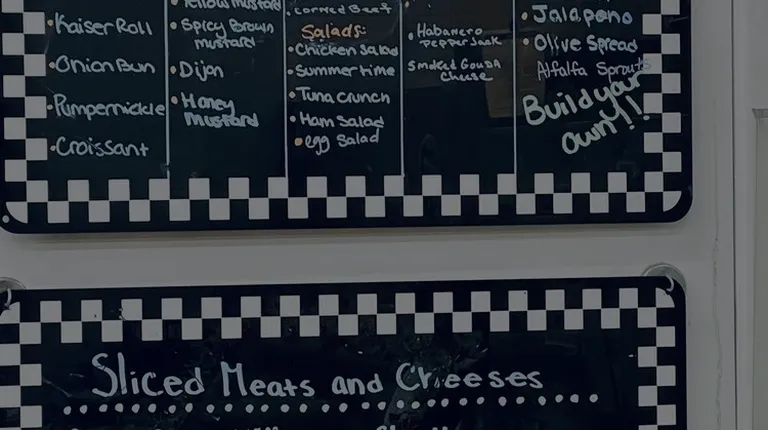 •Kaiser Roll
•Onion Bun
•Pumpernickle
•Croissant
•Yellow mustard
•Spicy Brown
mustard
•Dijon
•Honey
mustard
•Corned Beef
Salads:
•Chicken Salad
•Summertime
•Tuna crunch
•Ham Salad
•egg Salad
•Habanero
pepper Jack
Smoked Gouda
Cheese
•Jalapano
•Olive Spread
Alfalfa Sprouts
Build your
own!!
Sliced Meats and Cheeses